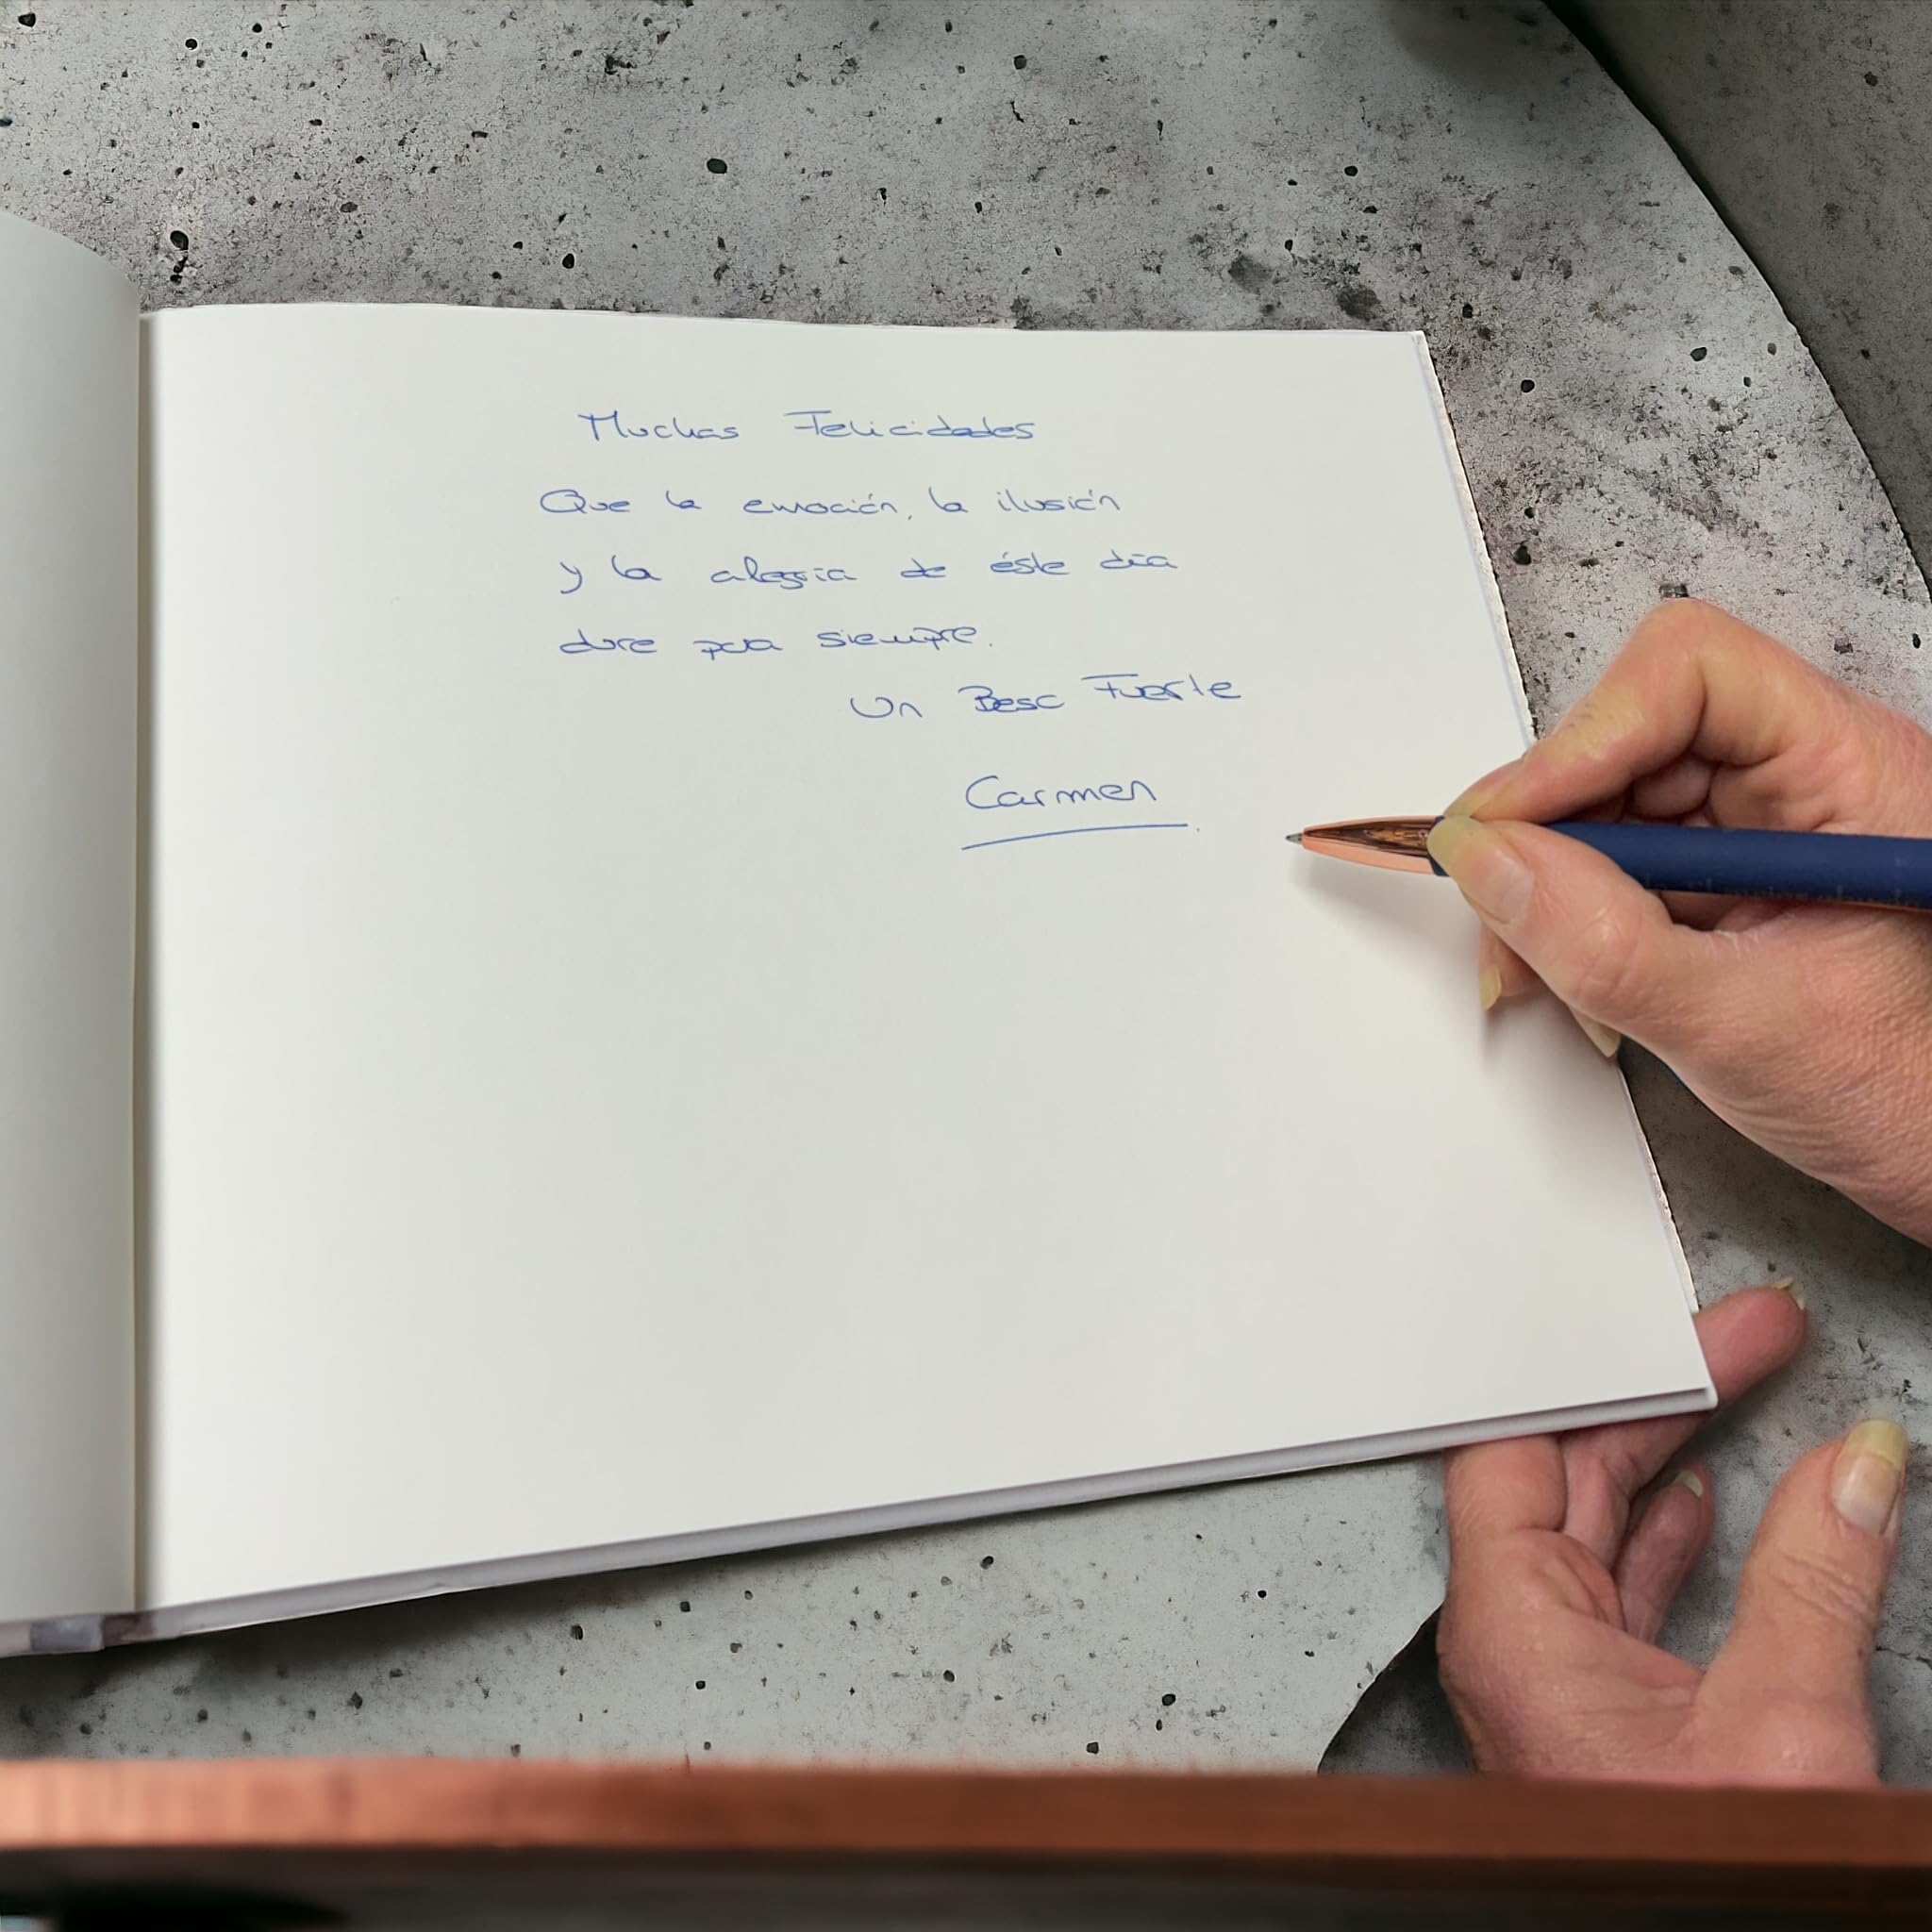 Muchas Felicidades
Que la emoción, la ilusión
y la alegria de éste día
dure para siempre.
Un Beso Fuerte
Carmen